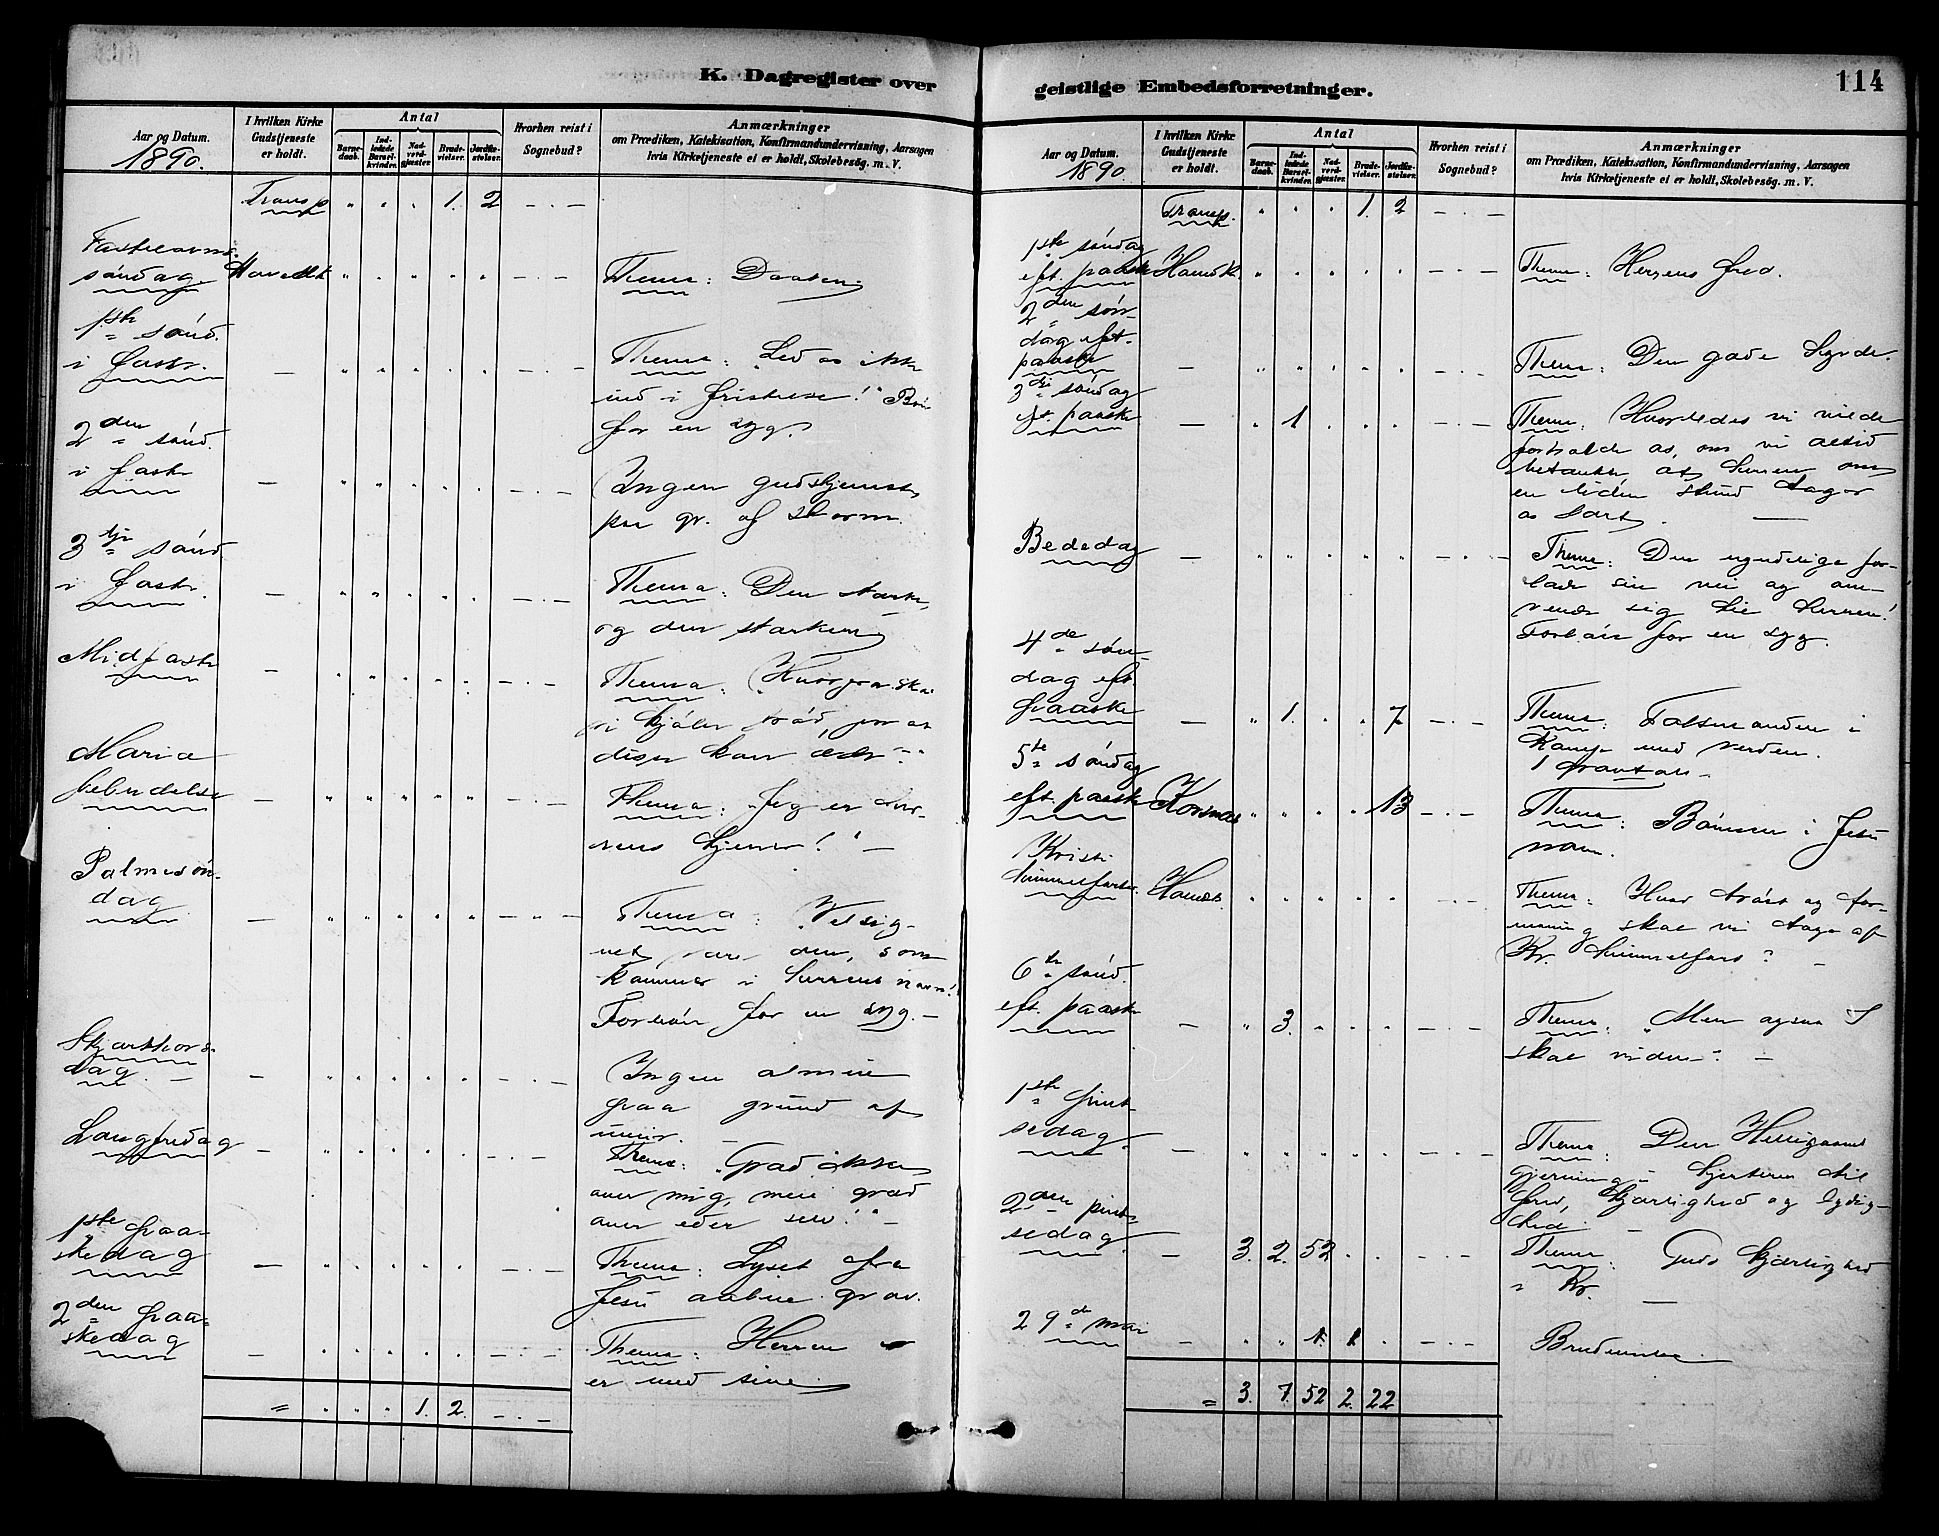 K. Dagregister over
Aar og Datum.
1890.
I hvilken Kirke
Gudstjeneste
er holdt.
Antal
Barne-
daab.
Ind-
ledede
Barsel-
kvinder.
Nad-
verd-
gjæster.
Brude-
vielser.
Jordfæ-
stelser.
Hvorhen reist i
Sognebud?
Anmærkninger
om Prædiken, Katekisation, Konfirmandundervisning, Aarsagen
hvis Kirketjeneste ei er holdt, Skolebesög. m. V.
Transp " " " 1. 2 - " -
Fastelavns-
søndag. " " " " " Thema: Daaben.
1ste sønd.
i faste. — " " " " " - " - Thema: "Led os ikke
ind i fristelse!" Bøn
for en syg.
2den sønd.
i faste — " " " " " - " - Ingen gudstjeneste
paa gr. af storm.
3die sønd.
i faste. — " " " " " - " - Thema: Den stærke
og den stærkere
Midfaste — " " " " " - " - Thema: "Hvorfra skal
vi kjøbe brød, for at
disse kan æde?"
Maria
bebudelse — " " " " " - " - Thema: "Jeg er Her-
rens tjener!" —
Palmesøn-
dag — " " " " " - " - Thema: "Velsig-
net være den, som
kommer i Herrens navn!"
Forbøn for en syg. —
Skjærthors-
dag. — — " " " " " - " - Ingen almue
paa grund af
uveir. —
Langfredag — " " " " " - " - Thema: "Græd ikke
over mig, men græd
over eder selv!" —
1ste paa-
skedag — " " " " " - " - Thema: Lyset fra
Jesu aabne grav.
2den paa-
skedag — " " " " " - " - Thema: Herren
er med sine
= " " " 1. 2. - " -
geistlige Embedsforretninger.
114
Aar og Datum.
1890.
I hvilken Kirke
Gudstjeneste
er holdt.
Antal
Barne-
daab.
Ind-
ledede
Barsel-
kvinder.
Nad-
verd-
gjæster.
Brude-
vielser.
Jordfæ-
stelser.
Hvorhen reist i
Sognebud?
Anmærkninger
om Prædiken, Katekisation, Konfirmandundervisning, Aarsagen
hvis Kirketjeneste ei er holdt, Skolebesög. m. V.
Transp. " " " 1. 2 - " -
1ste søndag
eft. paaske " " " " " - " - Thema: Herrens fred.
2den søn-
dag eft.
paaske — " " " " " - " - Thema: Den gode hyrde.
3die søndag
eft. paaske — " 1 " " " - " - Thema: Hvorledes vi vilde
forholde os, om vi altid
betænkte at Herren om
en liden stund tager
os bort. —
Bededag — " " " " " - " - Thema: Den ugudelige for-
lade sin vei og om-
vende sig til Herren!
Forbøn for en syg.
4de søn-
dag eft
paaske — " 1. " " 7 - " - Thema: Talsmanden i
kamp med verden.
5te søndag
eft. paaske Korsnes " " " " 13 - " - Thema: Bønnen i Jesu
navn.
Kristi
himmelfartsd. " " " " " - " - Thema: Hvad trøst og for-
maning skal vi tage af
Kr. himmelfart? —
6te sønd.
eft. paaske — " 3. " " " - " - Thema: "Men ogsaa I
skal vidne". —
1ste pint-
sedag — " " " " " - " - Thema: Den Helligaands
gjerning i hjerterne til
fred, kjærlighed og lydig-
hed. —
2den pint-
sedag. — 3. 2. 52 " " - " - Thema: Guds kjærlighed
i Kr. —
29de mai — " " " 1 " - " - Brudevielse
= 3. 7. 52 2. 22